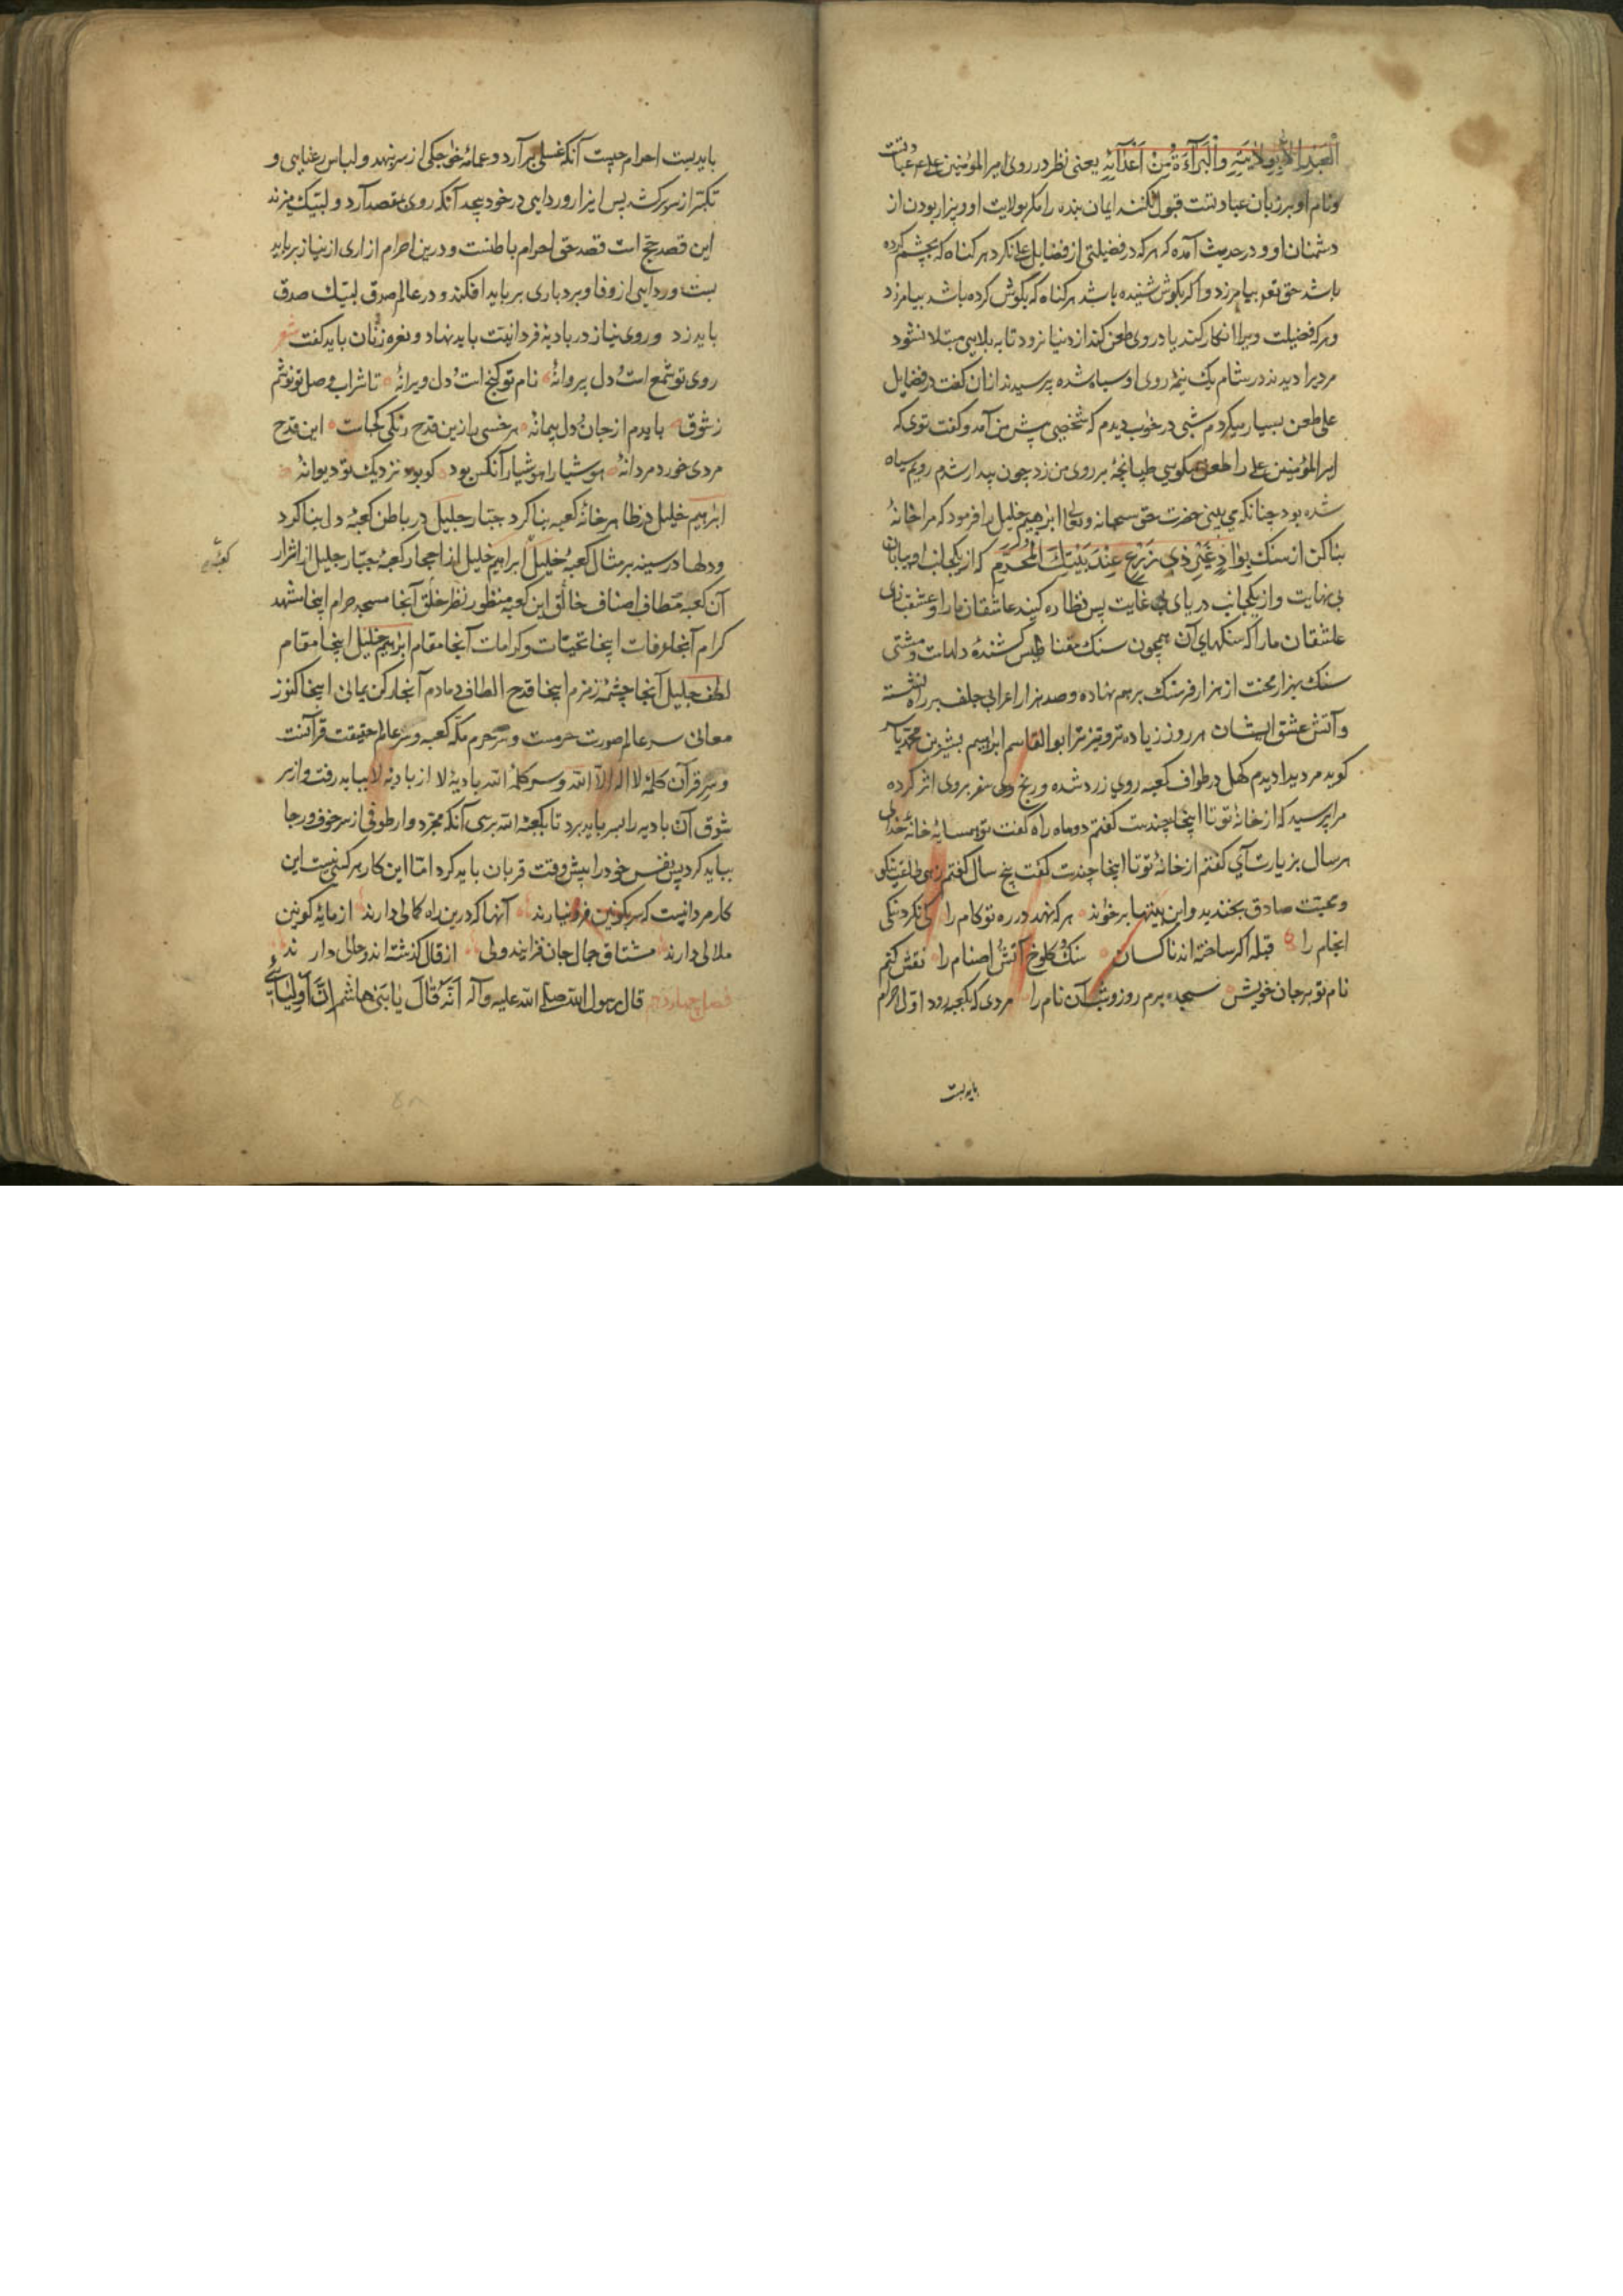 العبد الا بولایته والبرآءة من اعدآئه یعنی نظر در روی امیرالمؤمنین علی ع عبادتست
ونام او بر زبان عبادتست قبول نکند ایمان بنده را مکر بولایت او و بیزار بودن از
دشمنان او و در حدیث آمده که هر که در فضیلتی از فضایل علی نکرد هر کناه که بچشم کرده
باشد حق تعم بیامرزد و اکر بکوش شنیده باشد هر کناه که بگوش کرده باشد بیامرزد
وهر که فضیلت ویرا انکار کند یا در وی طعن کند از دنیا نرود تا به بلایی مبتلا نشود
مردیرا دیدند در شام یک نیمهٔ روی او سیاه شده پرسیدند از آن کفت در فضایل
علی طعن بسیار میکردم شبی در خواب دیدم که شخصی پیش من آمد و کفت توی که
امیرالمؤمنین علی را طعن میکویی طپانچهٔ بر روی من زد چون بیدار شدم رویم سیاه
شده بود چنانکه می بینی حضرت حق سبحانه وتعالی ابراهیم خلیل را فرمود که مرا خانهٔ
بنا کن از سنک بواد غیر ذی زرع عند بیتک المحرم که از یکجانب او بیابان
بی نهایت و از یکجانب دریای بی غایت پس نظاره کنید عاشقان ما را و عشقبازی
عاشقان ما را که سنکهای آن همچون سنک مقناطیس کشندهٔ دلهاست و مشتی
سنک بهزار محنت از هزار فرسنک بر هم نهاده و صد هزار اعرابی جلف بر راه نشسته
وآتش عشق ایشان هر روز زیاده تر و تیزتر ابوالقاسم ابراهیم بشیر بن محمد یاسر
کوید مردیرا دیدم کهل در طواف کعبه روی زرد شده و رنج سفر بروی اثر کرده
مرا پرسید که از خانهٔ تو تا اینجا چندست کفتم دو ماه راه کفت تو همسایهٔ خانهٔ خدای
هر سال بزیارت آی کفتم از خانهٔ تو تا اینجا چندست کفت پنج سال کفتم زهی طاعت نیکو
ومحبت صادق بخندید و این بیتها بر خواند هر که نهد در ره تو کام را کی نکرد نیکی
انجام را قبله اکر ساخته اند ناکسان سنک و کلوخ آتش اصنام را نقش کنم
نام تو بر جان خویش سجده برم روز و شب آن نام را مردی که بکعبه رود اول احرام
بایدبست
بایدبست احرام چیست آنکه غسلی برآرد و عمامهٔ خواجکی از سر بنهد و لباس رعنایی و
تکبر از سر برکشد پس ایزار و ردایی در خود پیچد آنکه روی بمقصد آرد و لبیک میزند
این قصد حج است قصد حق احرام باطنست و درین احرام ازاری از نیاز برباید
بست وردایی از وفا و بردباری بر باید افکند و در عالم صدق لبیک صدق
باید زد وروی نیاز در بادیهٔ فردانیت باید نهاد و نعره زنان باید کفت شعر
روی تو شمع است و دل پروانهٔ نام تو کنج است و دل ویرانهٔ تا شراب وصل تو نوشم
ز شوق بایدم از جان و دل پیمانهٔ هر خسی را زین قدح رنکی کجاست این قدح
مردی خورد مردانهٔ هوشیارا هوشیار آنکس بود کو بود نزدیک تو دیوانهٔ
ابراهیم خلیل در ظاهر خانهٔ کعبه بنا کرد جبار جلیل در باطن کعبهٔ دل بنا کرد
ودلها در سینه بر مثال کعبهٔ خلیل ابراهیم خلیل از احجار کعبهٔ جبار جلیل از اسرار
کعبهٔ
آن کعبه مطاف اصناف خلائق این کعبه منظور نظر خالق آنجا مسجد حرام اینجا مشهد
کرام آنجا عرفات اینجا تحیات و کرامات آنجا مقام ابراهیم خلیل اینجا مقام
لطف جلیل آنجا چشمهٔ زمزم اینجا قدح الطاف دمادم آنجا رکن یمانی اینجا کنوز
معانی سر عالم صورت حرمست و سر حرم مکه کعبه وسر عالم حقیقت قرآنست
وسر قرآن کلمهٔ لا اله الا الله وسر کلمهٔ الله بادیهٔ لا از بادیهٔ لا بباید رفت و از سر
شوق آن بادیه را بسر باید برد تا بکعبهٔ الله برسی آنکه مجرد وار طوفی از سر خوف و رجا
بباید کرد پس نفس خود را پیش وقت قربان باید کرد اما این کار هر کسی نیست این
کار مردانیست که سر بکونین فرو نیارند آنها که درین راه کمالی دارند از مایهٔ کونین
ملالی دارند مشتاق جمال جان فزایند ولی از قال کذشته اند و حالی دارند
فصل چهاردهم قال رسول الله صلی الله علیه وآله انه قال یا بنی هاشم ان اولیائی